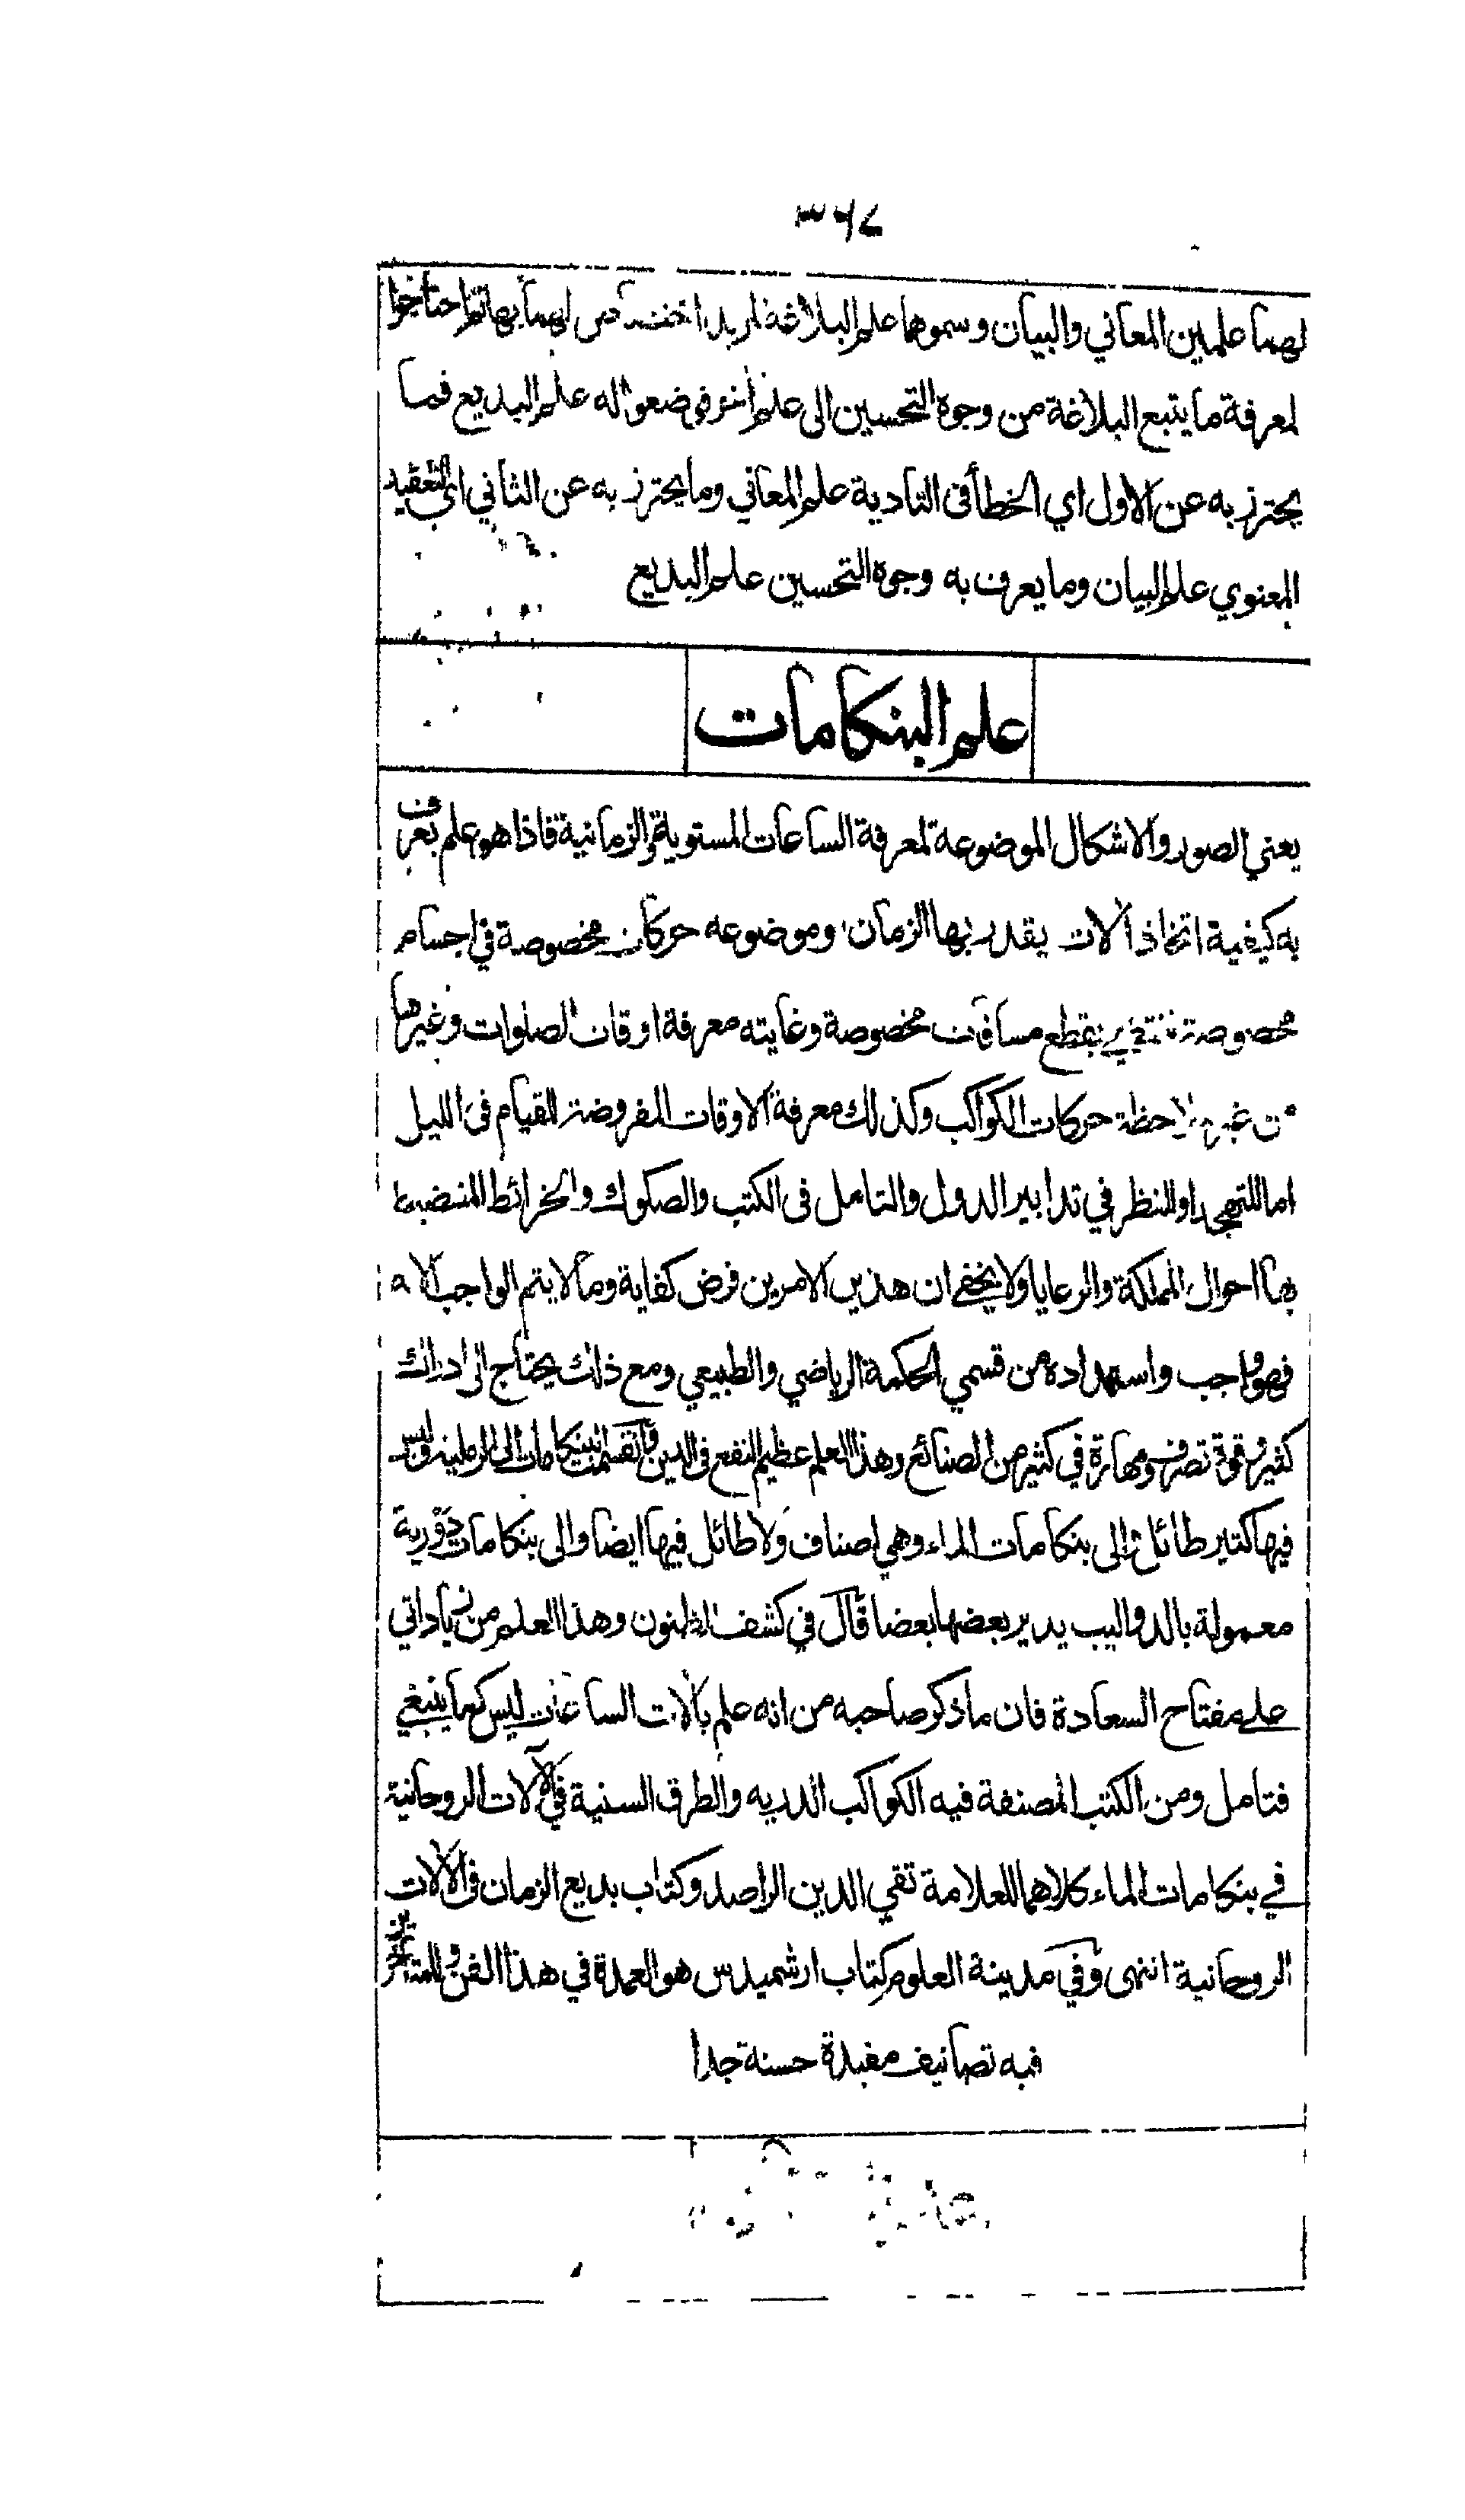 ٣٦٧
لهما علمين المعاني والبيان وسموهما علم البلاغة لمزيد اختصاص لهما بها ثم احتاجوا
لمعرفة ما يتبع البلاغة من وجوه التحسين الى علم آخر فوضعوا له علم البديع فما
يحترز به عن الاول اي الخطأ فى التادية علم المعاني وما يحترز به عن الثاني اي التعقيد
المعنوي علم البيان وما يعرف به وجوه التحسين علم البديع
علم البنكامات
يعني الصور والاشكال الموضوعة لمعرفة الساعات المستوية والزمانية فاذا هو علم يعرف
به كيفية اتخاذ آلات يقدر بها الزمان وموضوعه حركات مخصوصة في اجسام
مخصوصة تنقضي بقطع مسافات مخصوصة وغايته معرفة اوقات الصلوات وغيرها
من غير ملاحظة حركات الكواكب وكذلك معرفة الاوقات المفروضة للقيام فى الليل
اما للتهجد او للنظر في تدابير الدول والتامل فى الكتب والصكوك والخرائط المنضبط
بها احوال المملكة والرعايا ولا يخفى ان هذين الامرين فرض كفاية وما لا يتم الواجب الا به
فهو واجب واستمداده من قسمي الحكمة الرياضي والطبيعي ومع ذلك يحتاج الى ادراك
كثير وقوة تصرف ومهارة في كثير من الصنائع وهذا العلم عظيم النفع فى الدين وانقسمت البنكامات الى الرملية وليس
فيها كثير طائل والى بنكامات الماء وهي اصناف ولا طائل فيها ايضا والى بنكامات دورية
معمولة بالدواليب يدير بعضها بعضا قال في كشف الظنون وهذا العلم من زياداتي
على مفتاح السعادة فان ما ذكر صاحبه من انه علم بآلات الساعات ليس كما ينبغي
فتامل ومن الكتب المصنفة فيه الكواكب الدريه والطرق السنية في الآلات الروحانية
في بنكامات الماء كلاهما للعلامة تقي الدين الراصد وكتاب بديع الزمان فى الآلات
الروحانية انتهى وفي مدينة العلوم كتاب ارشميدس هو العمدة في هذا الفن وللمتأخرين
فيه تصانيف مفيدة حسنة جدا